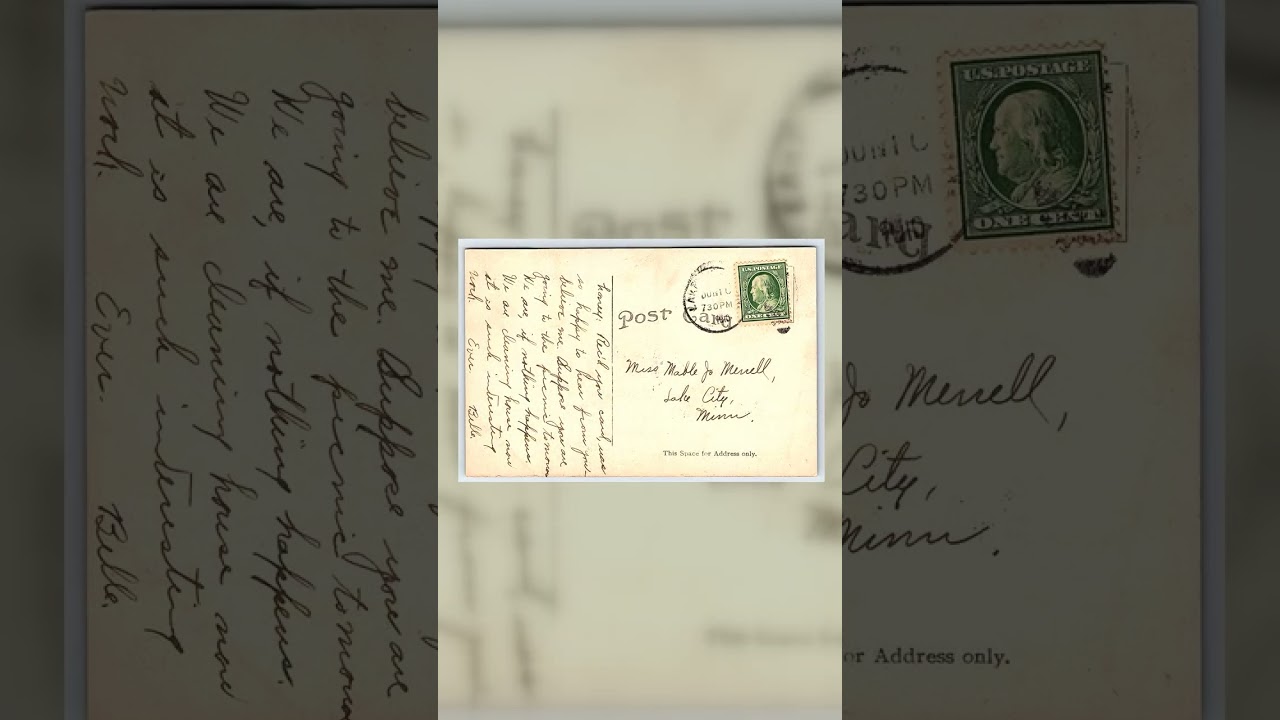 honey. Rec'd your card, was
so happy to hear from you
believe me. Suppose you are
going to the picnic tomorrow
We are, if nothing happens.
We are cleaning house now
it is such interesting
work. Ever. Belle.
Post Card
LAKE
JUN
7 30 PM
1910
U.S. POSTAGE
ONE CENT
Miss Mable Jo Merrell,
Lake City,
Minn.
This Space for Address only.